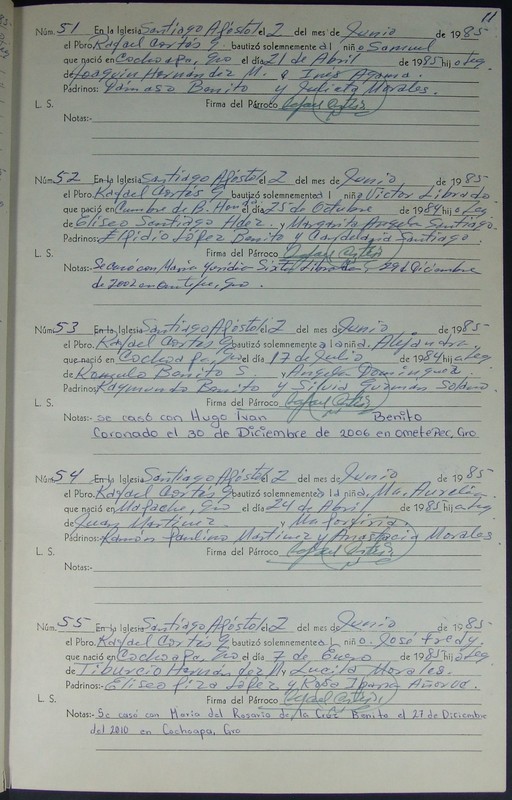 11
Núm. 51 En la Iglesia Santiago Apóstol el 2 del mes de Junio de 1985
el Pbro. Rafael Cortés G. bautizó solemnemente a l niño Samuel
que nació en Cochoapa, Gro el día 21 de Abril de 1985 hijo Leg.
de Joaquín Hernández M. e Inés
Padrinos: Dámaso Benito y Julieta Morales.
L. S. Firma del Párroco Rafael Cortés
Notas:-
Núm. 52 En la Iglesia Santiago Apóstol el 2 del mes de Junio de 1985
el Pbro. Rafael Cortés G. bautizó solemnemente a l niño Victor Librado
que nació en Cumbre de B. el día 25 de Octubre de 1984 hijo Leg
de Eliseo Santiago Hdez. y Margarita Angela Santiago.
Padrinos: Elfidio López Benito y Candelaria Santiago.
L. S. Firma del Párroco Rafael Cortés
Notas: Se casó con María Yuridia Librado, 29 d Diciembre
de 2002 en Gro.
Núm. 53 En la Iglesia Santiago Apóstol el 2 del mes de Junio de 1985
el Pbro. Rafael Cortés G. bautizó solemnemente a la niña, Alejandra,
que nació en Cochoapa, Gro el día 17 de Julio de 1984 hija Leg
de Romulo Benito S. y Angela Domínguez.
Padrinos: Raymundo Benito y Silvia Guzmán Solano.
L. S. Firma del Párroco Rafael Cortés
Notas:- se casó con Hugo Ivan Benito
Coronado el 30 de Diciembre de 2006 en Ometepec, Gro
Núm. 54 En la Iglesia Santiago Apóstol el 2 del mes de Junio de 1985
el Pbro. Rafael Cortés G. bautizó solemnemente a la niña, Ma. Aurelia,
que nació en Gro el día 24 de Abril de 1985 hija Leg
de Juan Martinez y Ma. Porfiria.
Padrinos:- Ramón Paulino Martinez y Anastacia Morales
L. S. Firma del Párroco Rafael Cortés
Notas:-
Núm. 55 En la Iglesia Santiago Apóstol el 2 del mes de Junio de 1985
el Pbro. Rafael Cortés G. bautizó solemnemente a L niño. José Fredy.
que nació en Cochoapa, Gro el día 7 de Enero de 1985 hijo Leg
de Tiburcio Hernández M. y Lucila Morales.
Padrinos:- Eliseo Piza López y Rosa Ibarra Añorve.
L. S. Firma del Párroco Rafael Cortés
Notas:- Se casó con Maria del Rosario de la Cruz Benito el 27 de Diciembre
del 2010 en Cochoapa, Gro